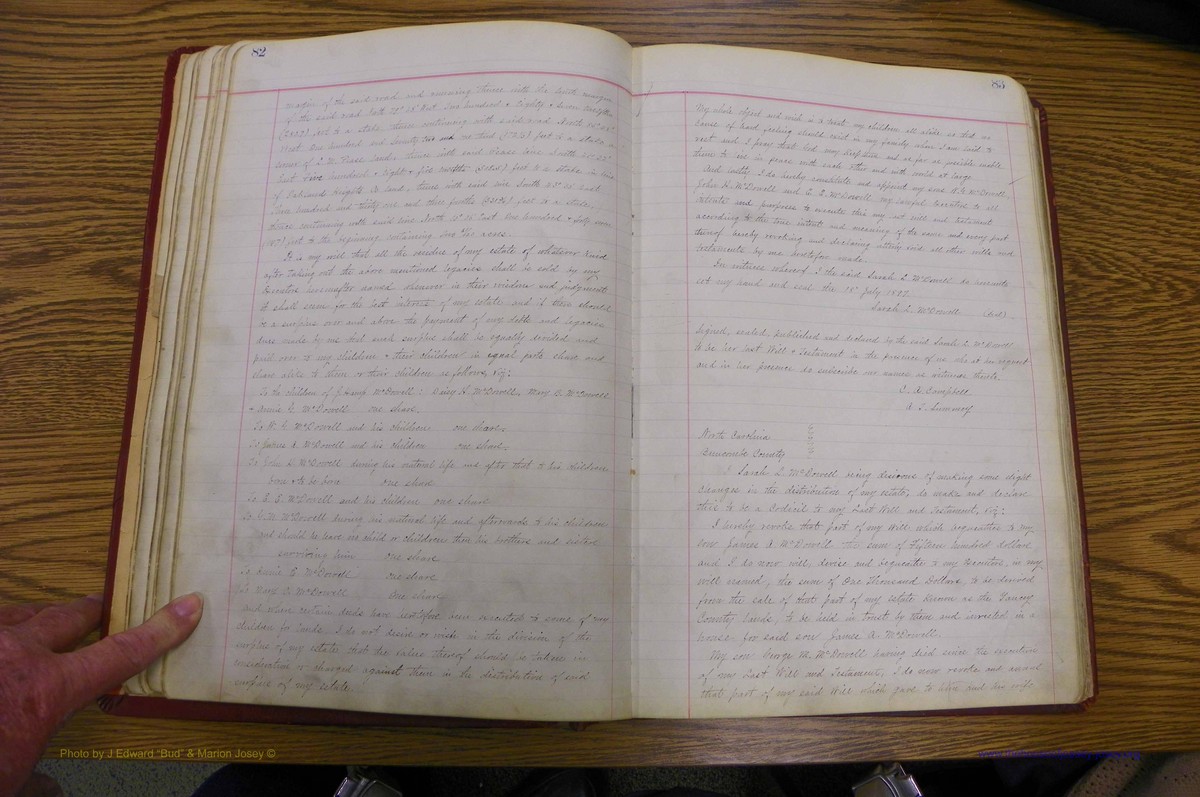 82
margin of the said road and running thence with the South margin
of the said road South 79° West two hundred & Eighty & seven twelfths
feet to a stake thence continuing with said road South
West One hundred and Seventy two and one third feet to a stake in
corner of Pease land, thence with said Pease line South
East five hundred & eight & five twelfths feet to a stake in line
of Oakland Heights Co land, thence with said line South 53° East
Two hundred and thirty one and three fourths feet to a stake,
thence continuing with said line North 15° East One hundred & sixty seven
(167) feet to the beginning, containing two acres.
It is my will that all the residue of my estate of whatsoever kind
after taking out the above mentioned legacies shall be sold by my
Executors hereafter named whenever in their wisdom and judgment
it shall seem for the best interest of my estate, and if there should
be a surplus over and above the payment of my debts and legacies
made by me that such surplus shall be equally divided and
paid over to my children & their children in equal parts share and
share alike to them or their children as follows, viz:
To the children of J. Hamp McDowell: Daisy A. McDowell, Mary E. McDowell
& Annie G. McDowell one share.
To W. G. McDowell and his children one share.
To James A. McDowell and his children one share.
To John K. McDowell during his natural life and after that to his children
born & to be born one share
To E. E. McDowell and his children one share
To G. M. McDowell during his natural life and afterwards to his children
and should he leave no child or children then his brothers and sisters
surviving him one share
To Annie E. McDowell one share
To Mary A. McDowell one share
and when certain deeds have heretofore been executed to some of my
children for lands. I do not desire or wish in the division of the
surplus of my estate that the value thereof should be taken in
consideration or charged against them in the distribution of said
surplus of my estate.
83
My whole object and wish is to treat my children all alike so that no
cause of hard feeling should exist in my family when I am laid to
rest and I pray that God may keep them and as far as possible enable
them to live in peace with each other and with world at large.
And lastly, I do hereby constitute and appoint my sons W. G. McDowell,
John K. McDowell and E. E. McDowell my lawful Executors to all
intents and purposes to execute this my last will and testament
according to the true intent and meaning of the same and every part
thereof hereby revoking and declaring utterly void all other wills and
testaments by me heretofore made.
In witness whereof I the said Sarah L. McDowell do hereunto
set my hand and seal this 15" July 1897.
Sarah L. McDowell (Seal)
Signed, sealed, published and declared by the said Sarah L. McDowell
to be her last Will & Testament in the presence of us who at her request
and in her presence do subscribe our names as witnesses thereto.
C. A. Campbell
A. T. Summey
North Carolina
Buncombe County
I Sarah L. McDowell being desirous of making some slight
changes in the distribution of my estate, do make and declare
this to be a Codicil to my Last Will and Testament, viz:
I hereby revoke that part of my Will which bequeaths to my
son James A. McDowell the sum of Fifteen hundred dollars
and I do now will, devise and bequeath to my Executors, in my
will named, the sum of One Thousand Dollars to be derived
from the sale of that part of my estate known as the Yancey
County lands, to be held in trust by them and invested in a
house for said son James A. McDowell.
My son George M. McDowell having died since the execution
of my Last Will and Testament, I do now revoke and annul
that part of my said Will which gave to him and his wife
Photo by J Edward "Bud" & Marion Josey ©